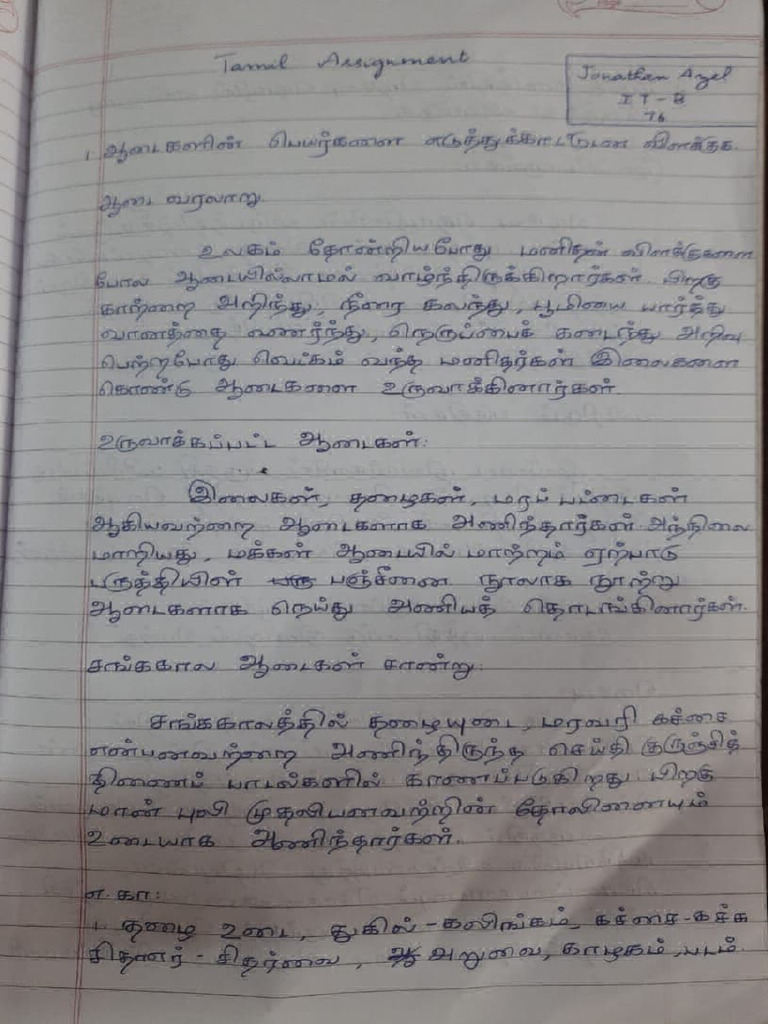 Tamil Assignment
Jonathan Azel
IT - B
76
1. ஆடைகளின் பெயர்களை எடுத்துக்காட்டுடன் விளக்குக.
ஆடை வரலாறு.
உலகம் தோன்றியபோது மனிதன் விலங்குகளை
போல ஆடையில்லாமல் வாழ்ந்திருக்கிறார்கள். பிறகு
காற்றை அறிந்து, நீரை கலந்து, பூமியை பார்த்து
வானத்தை உணர்ந்து, நெருப்பைக் கடைந்து அறிவு
பெற்றபோது வெட்கம் வந்த மனிதர்கள் இலைகளை
கொண்டு ஆடைகளை உருவாக்கினார்கள்.
உருவாக்கப்பட்ட ஆடைகள்:
இலைகள், தழைகள், மரப் பட்டைகள்
ஆகியவற்றை ஆடைகளாக அணிந்தார்கள். அந்நிலை
மாறியது, மக்கள் ஆடையில் மாற்றம் ஏற்பாடு
பருத்தியின் பஞ்சினை நூலாக நூற்று
ஆடைகளாக நெய்து அணியத் தொடங்கினார்கள்.
சங்ககால ஆடைகள் சான்று:
சங்ககாலத்தில் தழையுடை, மரவரி கச்சை
என்பனவற்றை அணிந்திருந்த செய்தி குருஞ்சித்
திணைப் பாடல்களில் காணப்படுகிறது பிறகு
மான் புலி முதலியனவற்றின் தோலினையும்
உடையாக ஆணிந்தார்கள்.
எ.கா:
1. தழை உடை, துகில் - கலிங்கம், கச்சை - கச்சு
சிதாஎர் - சிதர்வை, அறுவை, காழகம், படம்